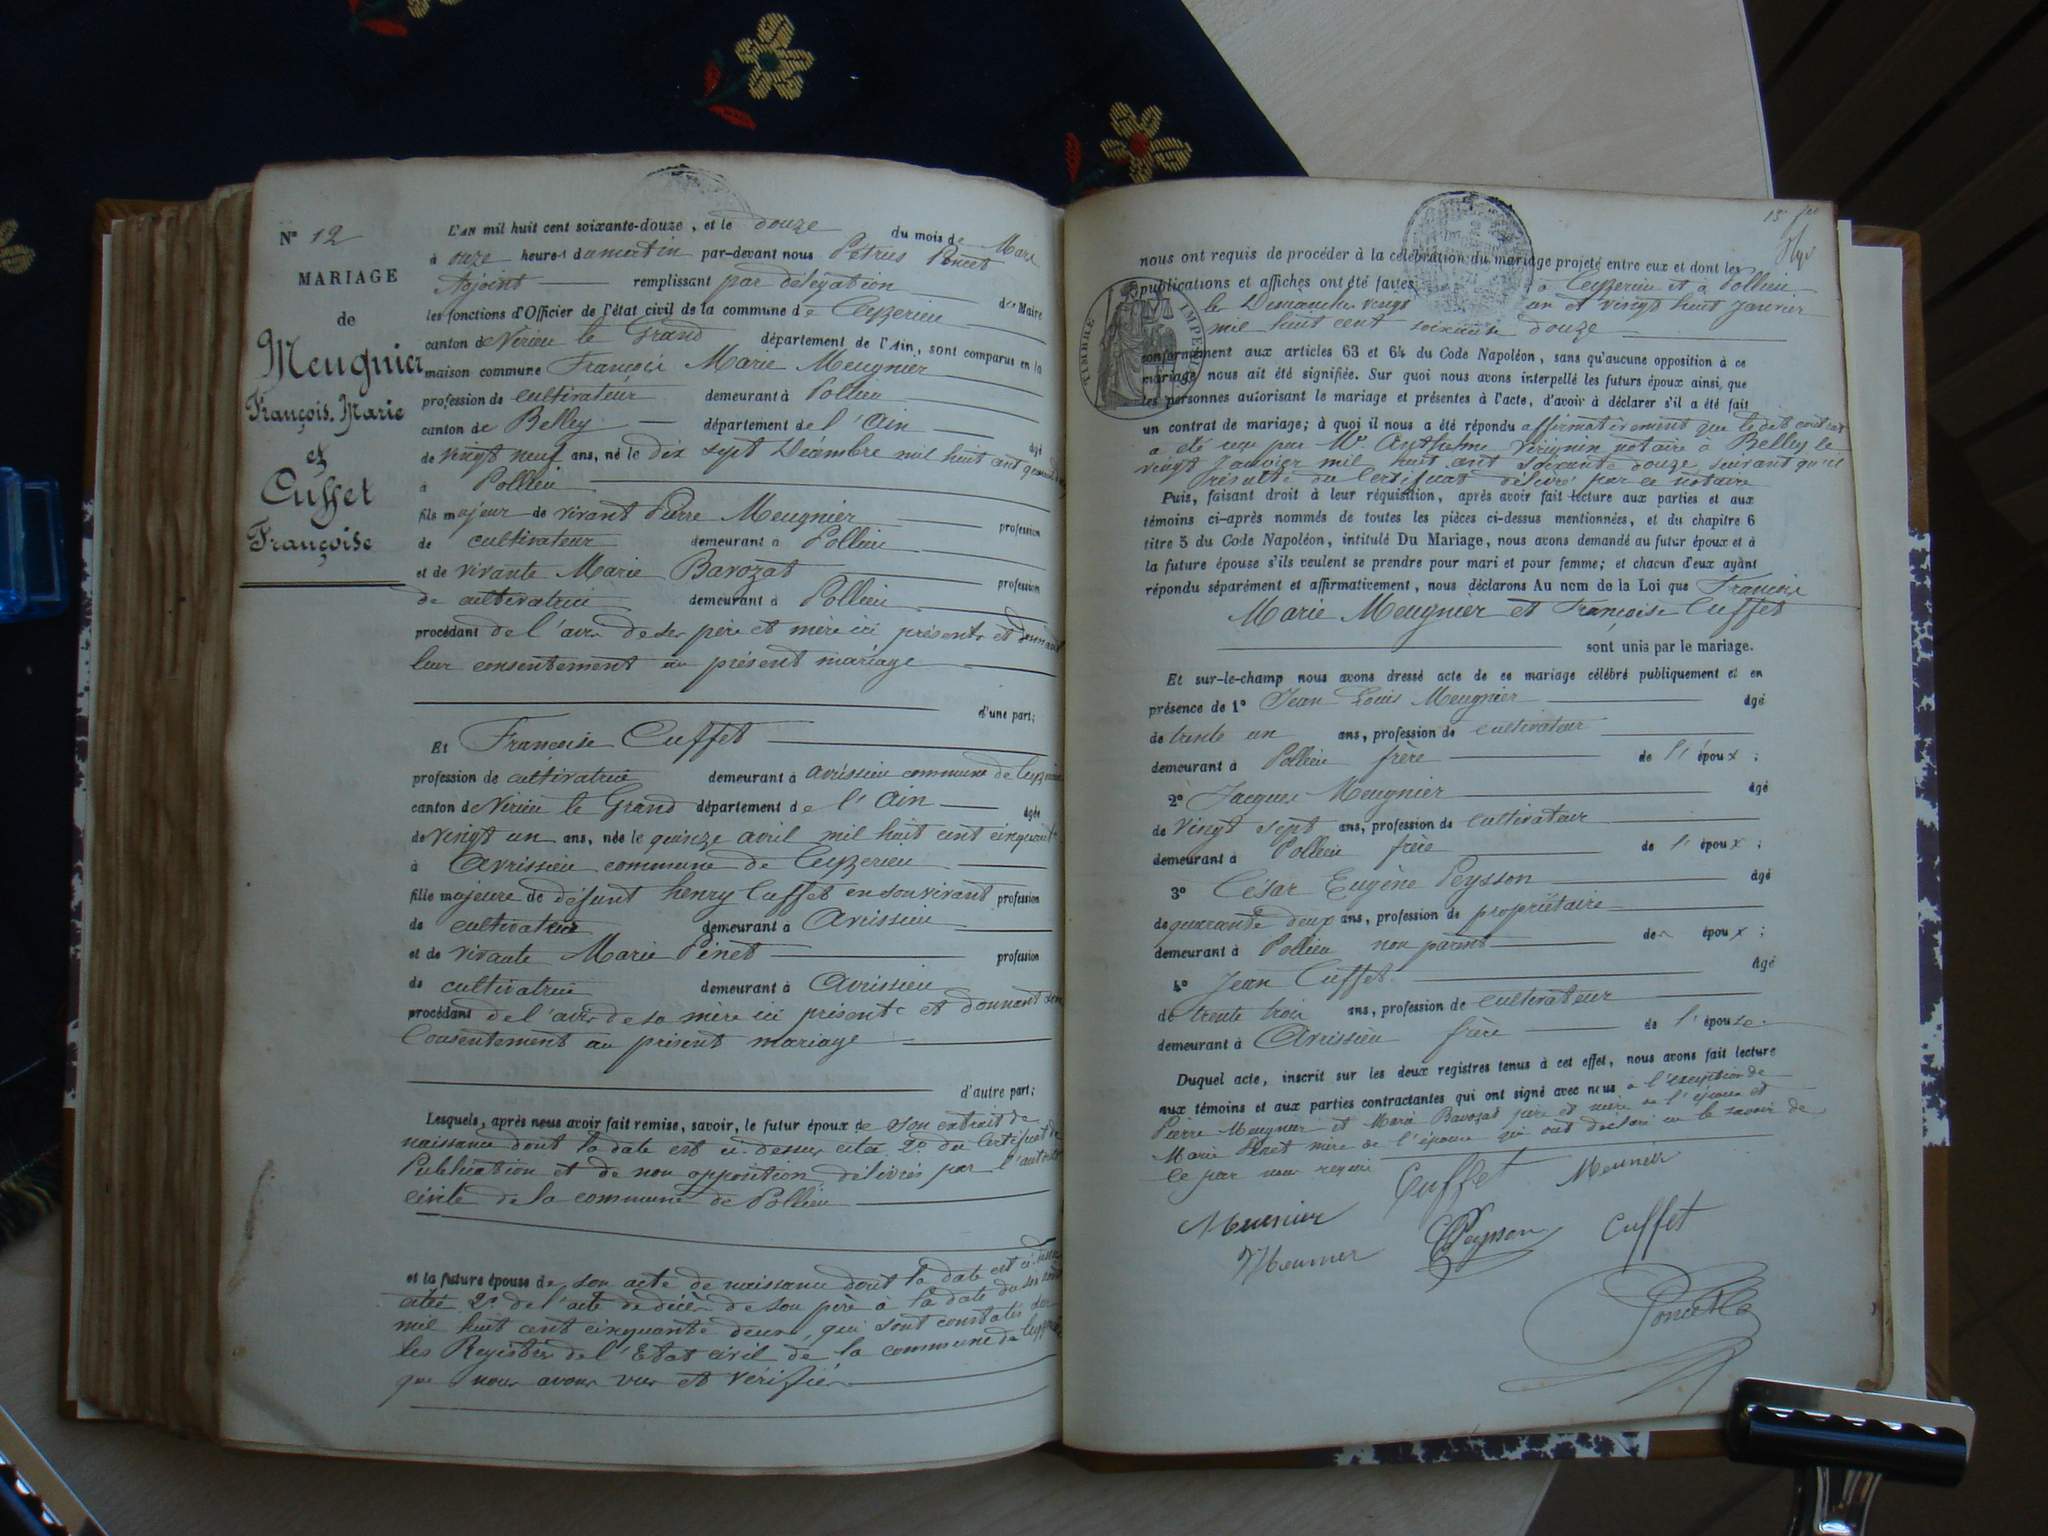 Nº 12
MARIAGE
de
Meugnier
François Marie
et
Cuffet
Françoise
L'AN mil huit cent soixante-douze, et le douze du mois de Mars
à onze heures du matin par-devant nous Pétrus Poncet
Adjoint remplissant par délégation du Maire
les fonctions d'Officier de l'état civil de la commune de Ceyzerieu
canton de Virieu le Grand département de l'Ain, sont comparus en la
maison commune François Marie Meugnier
profession de cultivateur demeurant à Pollieu
canton de Belley département de l'Ain âgé
de vingt neuf ans, né le dix sept Décembre mil huit cent
à Pollieu
fils majeur de vivant Pierre Meugnier profession
de cultivateur demeurant à Pollieu
et de vivante Marie Bavozat profession
de cultivatrice demeurant à Pollieu
procédant de l'avis de ses père et mère ici présents et donnant
leur consentement au présent mariage
d'une part;
Et Françoise Cuffet
profession de cultivatrice demeurant à avrissieu commune de Ceyzerieu
canton de Virieu le Grand département de l'Ain âgée
de vingt un ans, née le quinze avril mil huit cent cinquante
à Avrissieu commune de Ceyzerieu
fille majeure de défunt henry Cuffet en son vivant profession
de cultivateur demeurant à Avrissieu
et de vivante Marie Pinet profession
de cultivatrice demeurant à Avrissieu
procédant de l'avis de sa mère ici présente et donnant son
Consentement au présent mariage
d'autre part;
Lesquels, après nous avoir fait remise, savoir, le futur époux de son extrait de
naissance dont la date est ci-dessus citée 2º du Certificat de
Publication et de non opposition délivrés par l'autorité
civile de la commune de Pollieu
et la future épouse de son acte de naissance dont la date est ci-dessus
citée 2º de l'acte de décès de son père à la date du
mil huit cent cinquante deux, qui sont constatés sur
les Registres de l'Etat civil de la commune de Ceyzerieu
que nous avons vus et vérifiés
13
nous ont requis de procéder à la célébration du mariage projeté entre eux et dont les
publications et affiches ont été faites à Ceyzerieu et à Pollieu
les Dimanches vingt un et vingt huit Janvier
mil huit cent soixante douze
TIMBRE IMPERIAL
conformément aux articles 63 et 64 du Code Napoléon, sans qu'aucune opposition à ce
mariage nous ait été signifiée. Sur quoi nous avons interpellé les futurs époux ainsi, que
les personnes autorisant le mariage et présentes à l'acte, d'avoir à déclarer s'il a été fait
un contrat de mariage; à quoi il nous a été répondu affirmativement que le dit contrat
a été reçu par Me Anthelme notaire à Belley le
vingt Janvier mil huit cent soixante douze suivant qu'il
résulte du Certificat délivré par ce notaire
Puis, faisant droit à leur réquisition, après avoir fait lecture aux parties et aux
témoins ci-après nommés de toutes les pièces ci-dessus mentionnées, et du chapitre 6
titre 5 du Code Napoléon, intitulé Du Mariage, nous avons demandé au futur époux et à
la future épouse s'ils veulent se prendre pour mari et pour femme; et chacun d'eux ayant
répondu séparément et affirmativement, nous déclarons Au nom de la Loi que François
Marie Meugnier et Françoise Cuffet
sont unis par le mariage.
Et sur-le-champ nous avons dressé acte de ce mariage célébré publiquement et en
présence de 1º Jean Louis Meugnier âgé
de trente un ans, profession de cultivateur
demeurant à Pollieu frère de l'époux;
2º Jacques Meugnier âgé
de vingt sept ans, profession de cultivateur
demeurant à Pollieu frère de l'époux;
3º César Eugène Peysson âgé
de quarante deux ans, profession de propriétaire
demeurant à Pollieu non parent de époux;
4º Jean Cuffet âgé
de trente trois ans, profession de cultivateur
demeurant à Avrissieu frère de l'épouse.
Duquel acte, inscrit sur les deux registres tenus à cet effet, nous avons fait lecture
aux témoins et aux parties contractantes qui ont signé avec nous à l'exception de
Pierre Meugnier et Marie Bavozat père et mère de l'époux et
Marie Pinet mère de l'épouse qui ont déclaré ne le savoir de
ce par nous requis
Cuffet Meunier
Meunier Peysson Cuffet
Meunier
Poncet